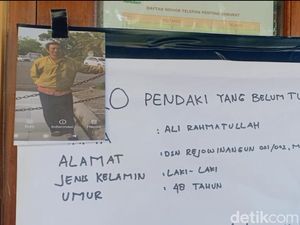 DAFTAR NOMOR TELEPON PENTING
O PENDAKI YANG BELUM TU
: ALI RAHMATULLAH
ALAMAT : DSN REJOWINANGUN 001/002, M
JENIS KELAMIN : LAKI-LAKI
UMUR : 48 TAHUN
detikcom